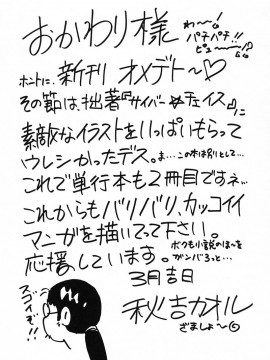 おかわり様
わ～!
パチパチ!!
ピュ～～!
ホントに、新刊 オメデト～♡
その節は、拙著『サイバー☆チェイス』に
素敵なイラストをいっぱいもらって
ウレシかったデス。ま…この本は別りとして…
これで単行本も2冊目ですネ。
これからもバリバリ、カッコイイ
マンガを描いてって下さい。
応援しています。ボクも小説のほーを
ガンバろっと…
3月吉日
秋吉カオル
ざましょ～
スゴイぞ!!